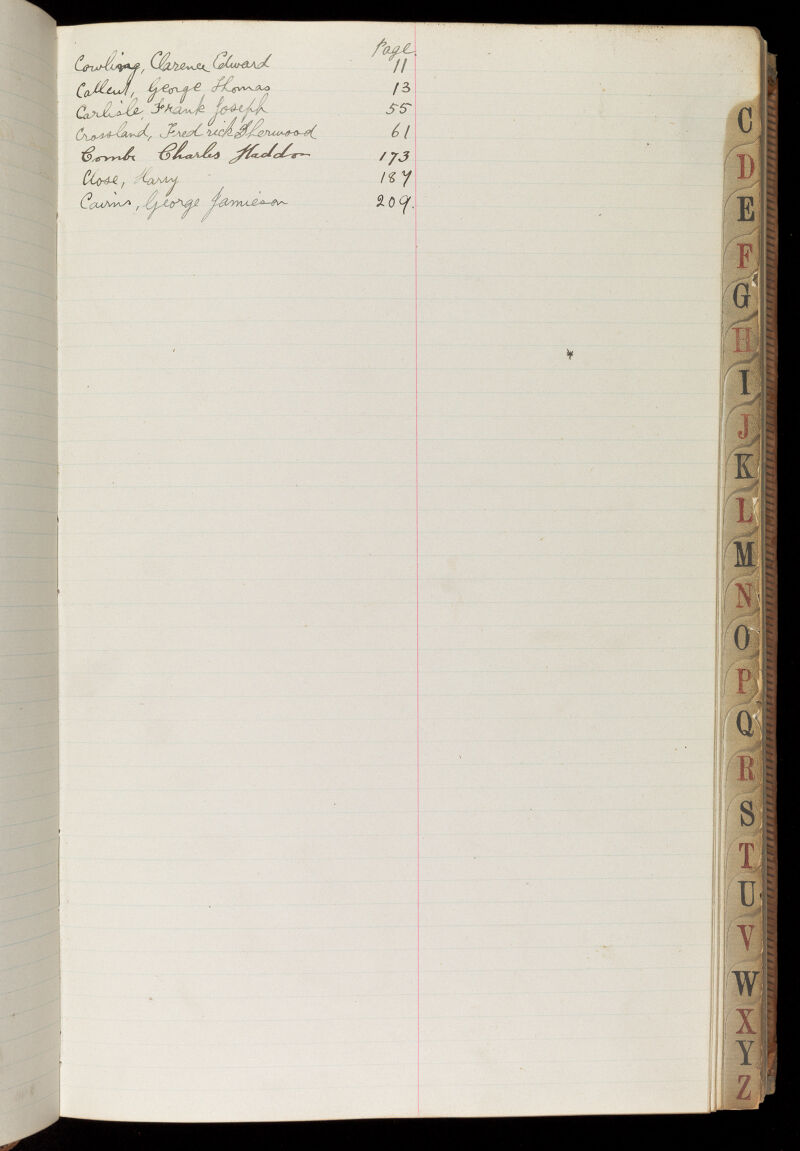 Page.
Cowling, Clarence Edward 11
Callcut, George Thomas 13
Carlisle, Frank Joseph 55
Crossland, Fredrick Sherwood 61
Combe Charles Haddon 173
Close, Harry 187
Cairns, George Jamieson 209.
C
D
E
F
G
H
I
J
K
L
M
N
O
P
Q
R
S
T
U
V
W
X
Y
Z